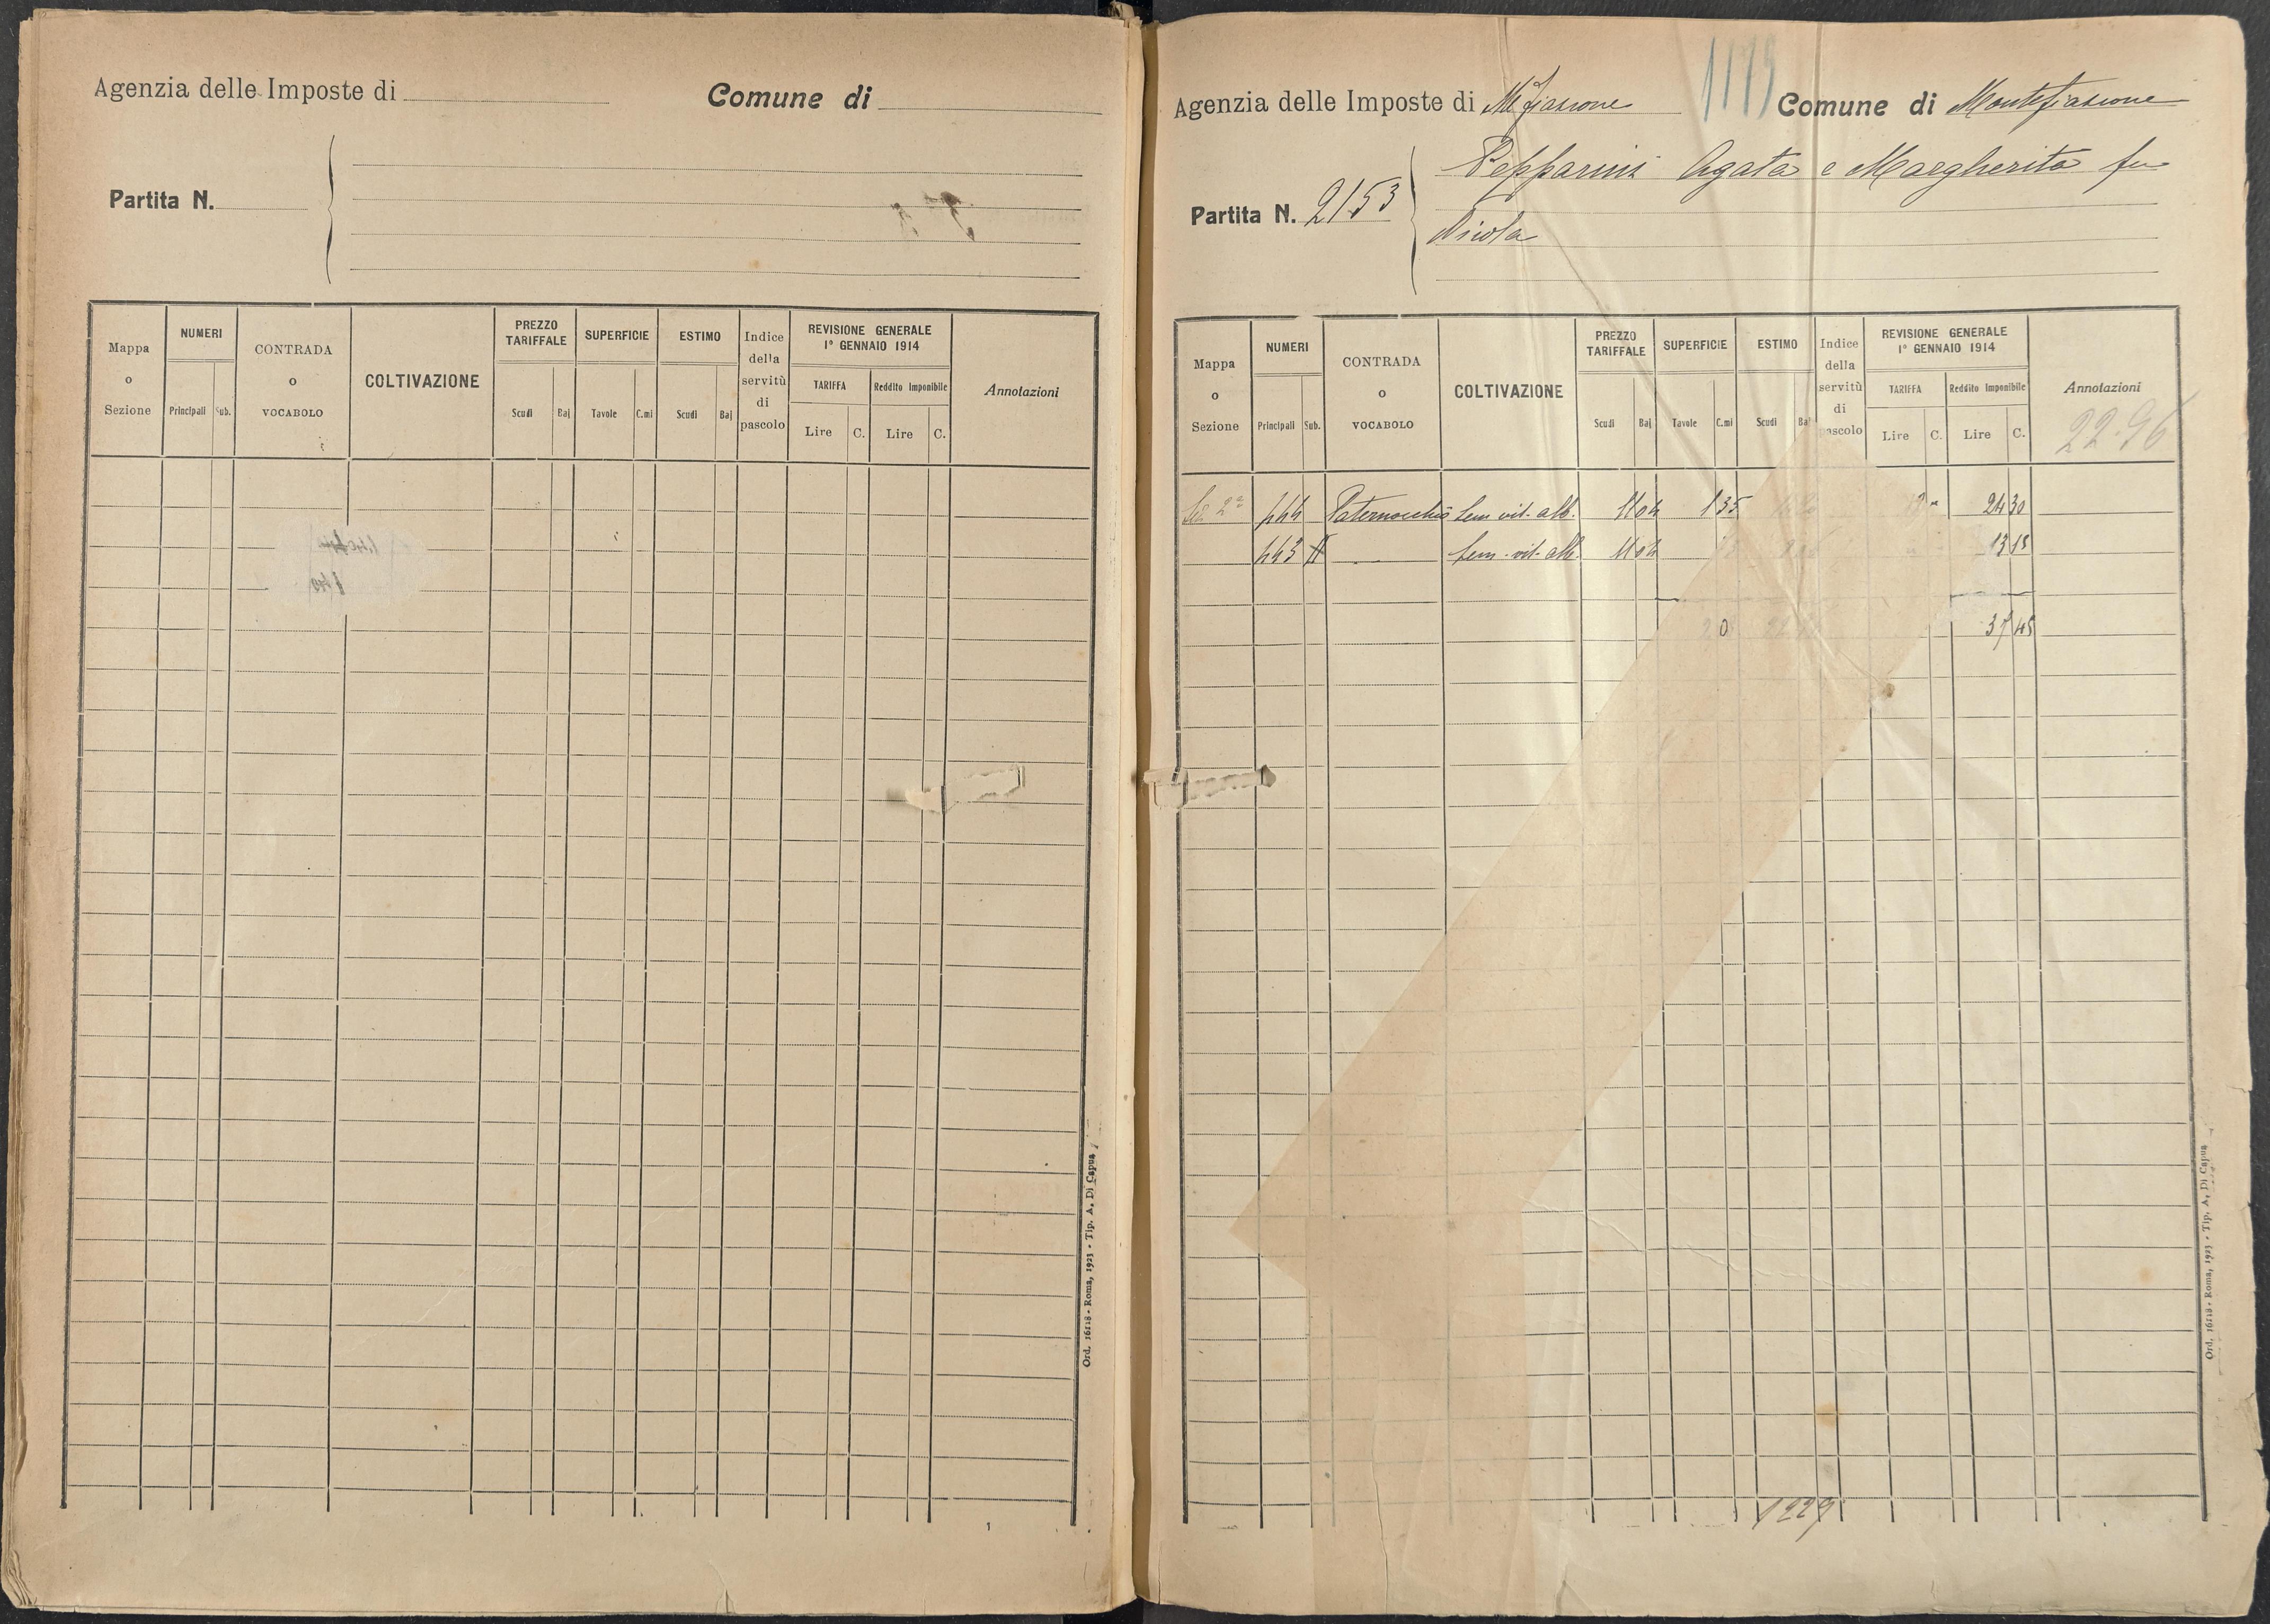 Agenzia delle Imposte di
Comune di
Partita N.
Mappa o Sezione
NUMERI
Principali Sub.
CONTRADA o VOCABOLO
COLTIVAZIONE
PREZZO TARIFFALE
Scudi Baj
SUPERFICIE
Tavole C.mi
ESTIMO
Scudi Baj
Indice della servitù di pascolo
REVISIONE GENERALE
1° GENNAIO 1914
TARIFFA Reddito Imponibile
Lire C. Lire C.
Annotazioni
Ord. 16118 - Roma, 1923 - Tip. A. Di Capua
1173
Agenzia delle Imposte di Mfiascone
Comune di Montefiascone
Partita N. 2153
Pepparini Agata e Margherita fu
Nicola
Mappa o Sezione
NUMERI
Principali Sub.
CONTRADA o VOCABOLO
COLTIVAZIONE
PREZZO TARIFFALE
Scudi Baj
SUPERFICIE
Tavole C.mi
ESTIMO
Scudi Baj
Indice della servitù di pascolo
REVISIONE GENERALE
1° GENNAIO 1914
TARIFFA Reddito Imponibile
Lire C. Lire C.
Annotazioni
22.96
Sez 2ª 444 Paternocchio Sem vit. alb. 11 04 1 35 24 30
443 Sem. vit. alb. 11 04 13 15
37 45
1229
Ord. 16118 - Roma, 1923 - Tip. A. Di Capua